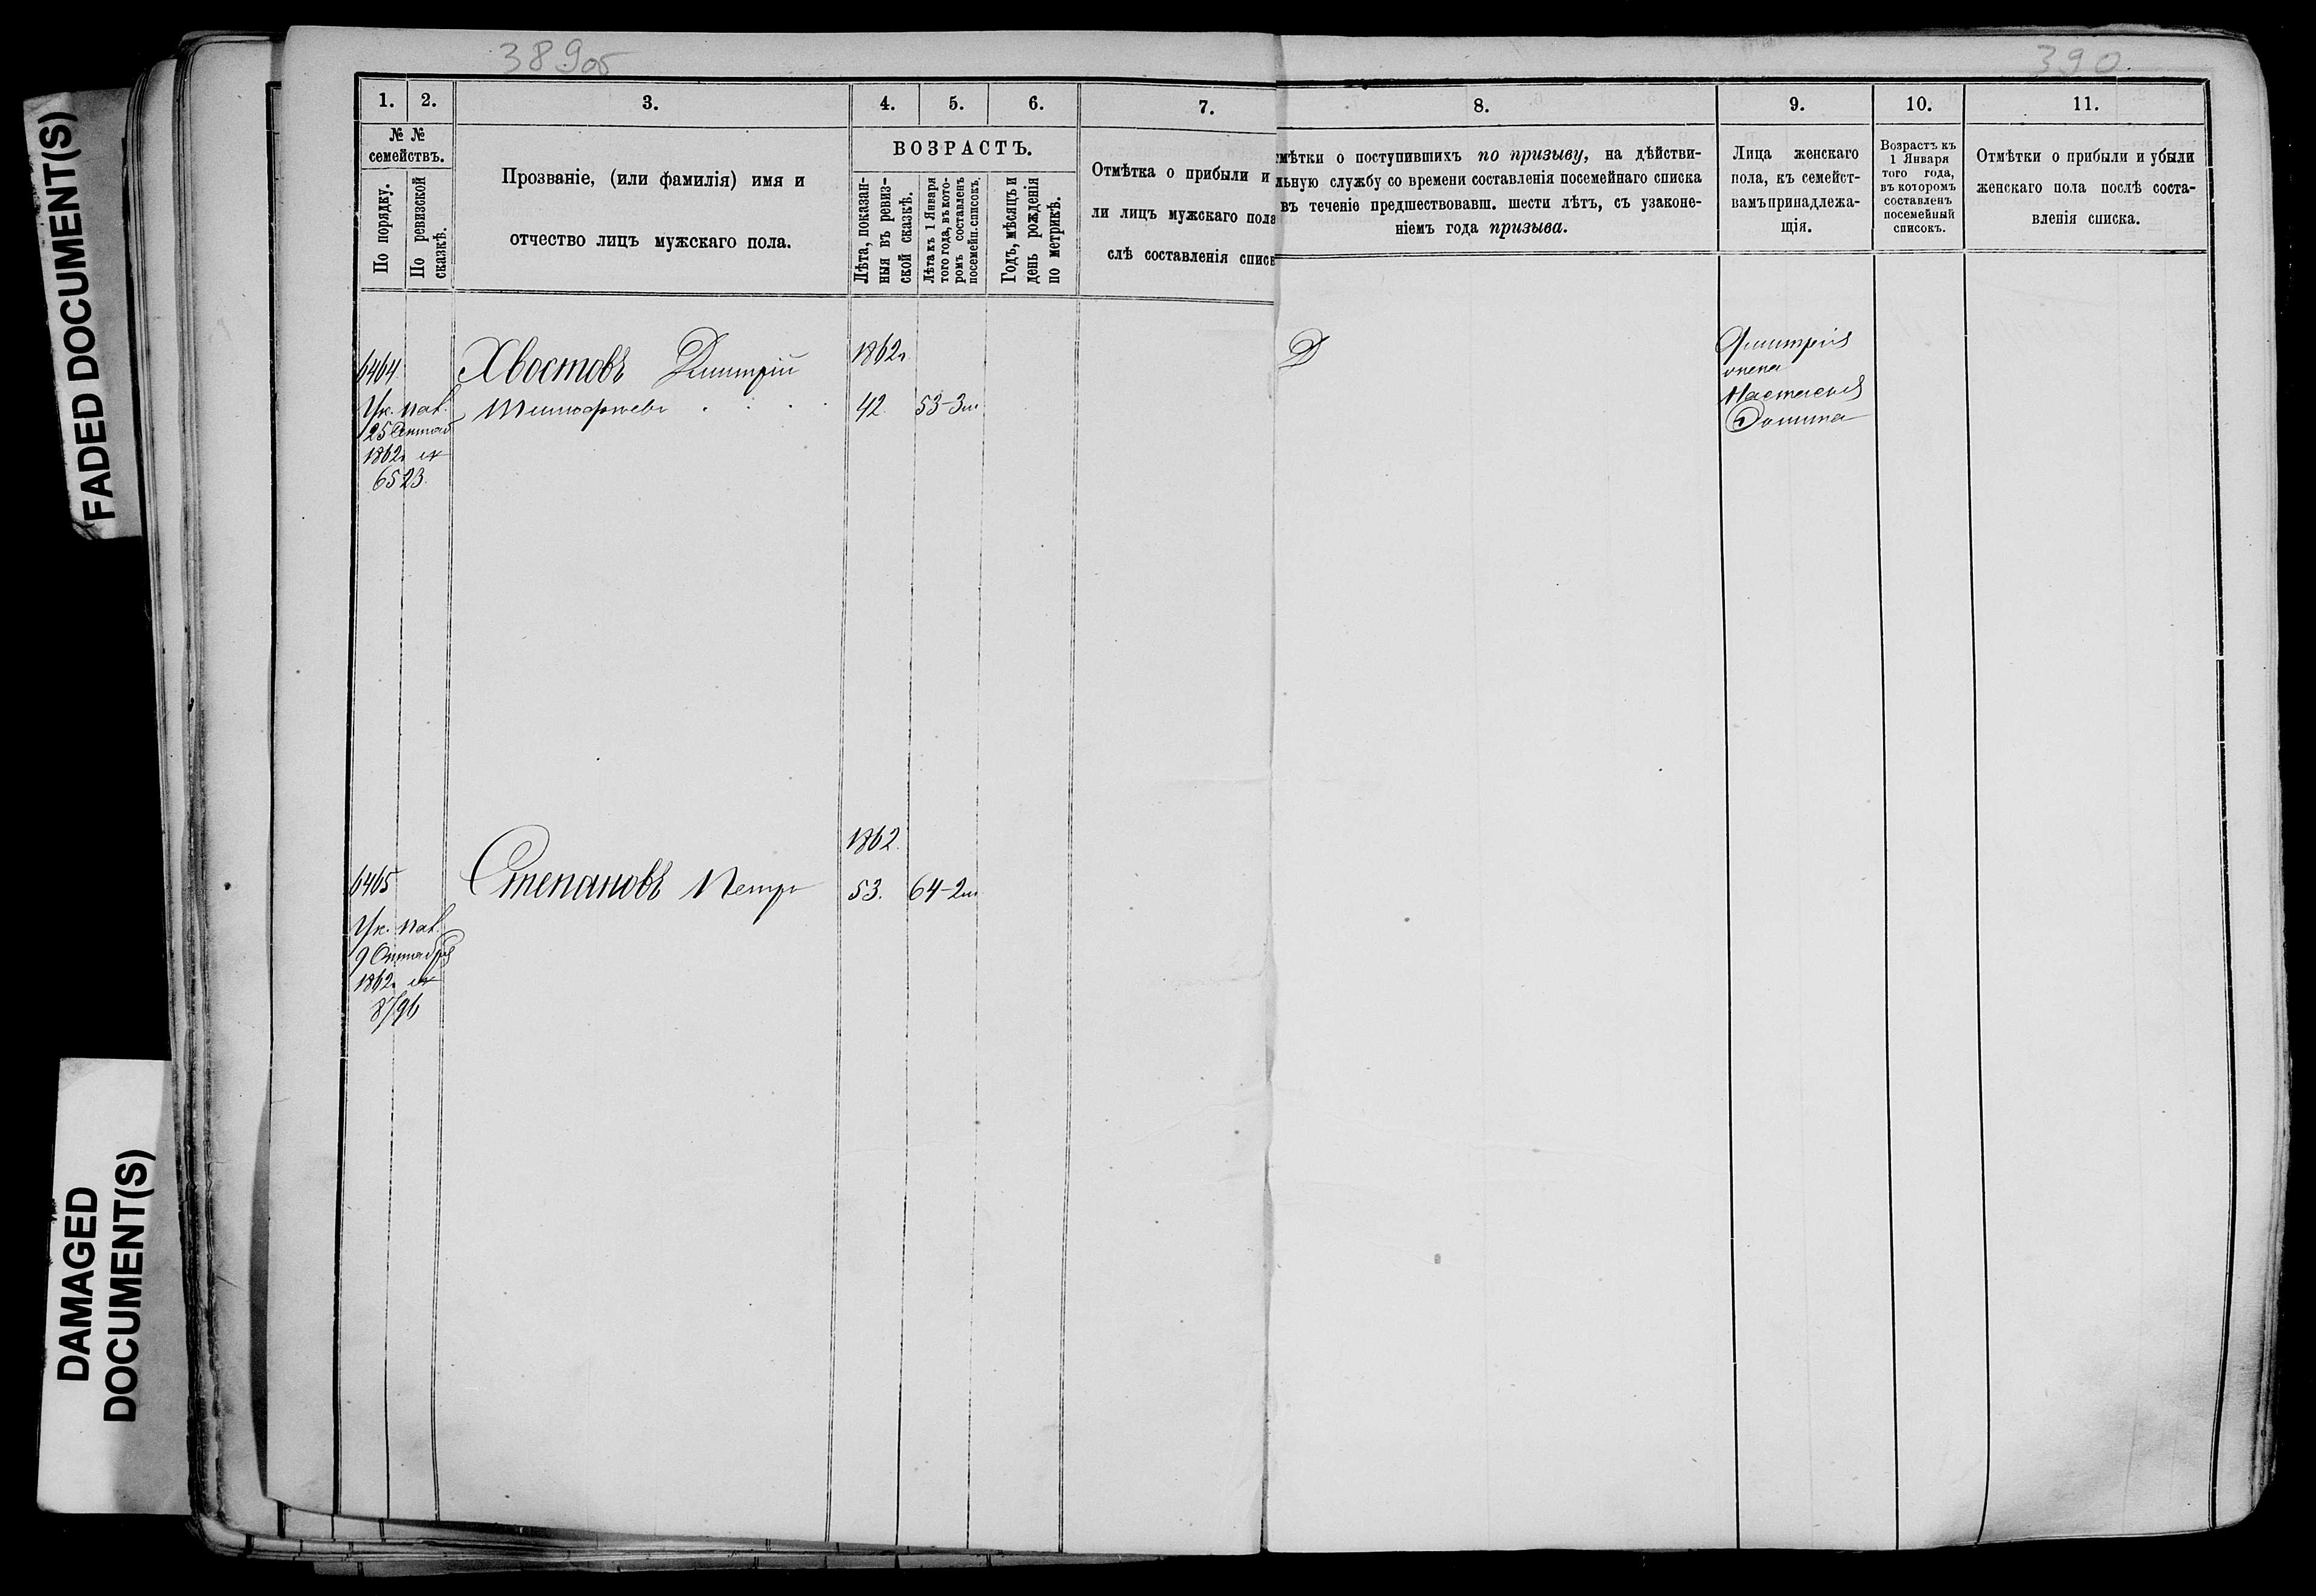 FADED DOCUMENT(S)
DAMAGED
DOCUMENT(S)
389об
390.
1.
2.
3.
4.
5.
6.
7.
8.
9.
10.
11.
№ №
семействъ.
По порядку.
По ревизской
сказкѣ.
Прозваніе, (или фамилія) имя и
отчество лицъ мужскаго пола.
ВОЗРАСТЪ.
Лѣта, показан-
ныя въ ревиз-
ской сказкѣ.
Лѣта къ 1 Января
того года, въ кото-
ромъ составленъ
посемейн. списокъ.
Годъ, мѣсяцъ и
день рожденія
по метрикѣ.
Отмѣтка о прибыли и
ли лицъ мужскаго пола
слѣ составленія списк
мѣтки о поступившихъ по призыву, на дѣйстви-
льную службу со времени составленія посемейнаго списка
въ теченіе предшествовавш. шести лѣтъ, съ узаконе-
ніемъ года призыва.
Лица женскаго
пола, къ семейст-
вамъ принадлежа-
щія.
Возрастъ къ
1 Января
того года,
въ которомъ
составленъ
посемейный
списокъ.
Отмѣтки о прибыли и убыли
женскаго пола послѣ соста-
вленія списка.
6464
Хвостовъ Дмитрій
1862г.
Ук. пал.
Тимофѣевъ
42.
53-3м
25
1862г.
6523.
Д
Дмитрія
жена
Настасья
Домна
1862.
6465
Степановъ Петръ
53.
64-2м
Ук. пал.
9 Октября
1862г.
8796